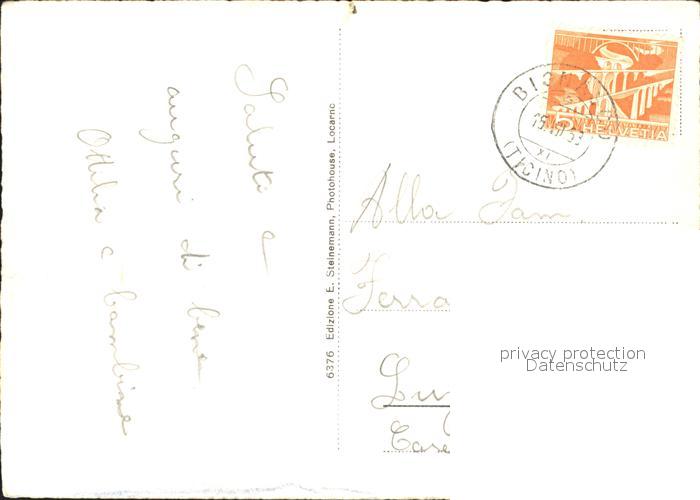 Saluti e
auguri di bene
Ottilia e bambine
6376 Edizione E. Steinemann, Photohouse, Locarno
5 HELVETIA
(TICINO)
Alla Fam.
Ferra
Lu
Case
privacy protection
Datenschutz